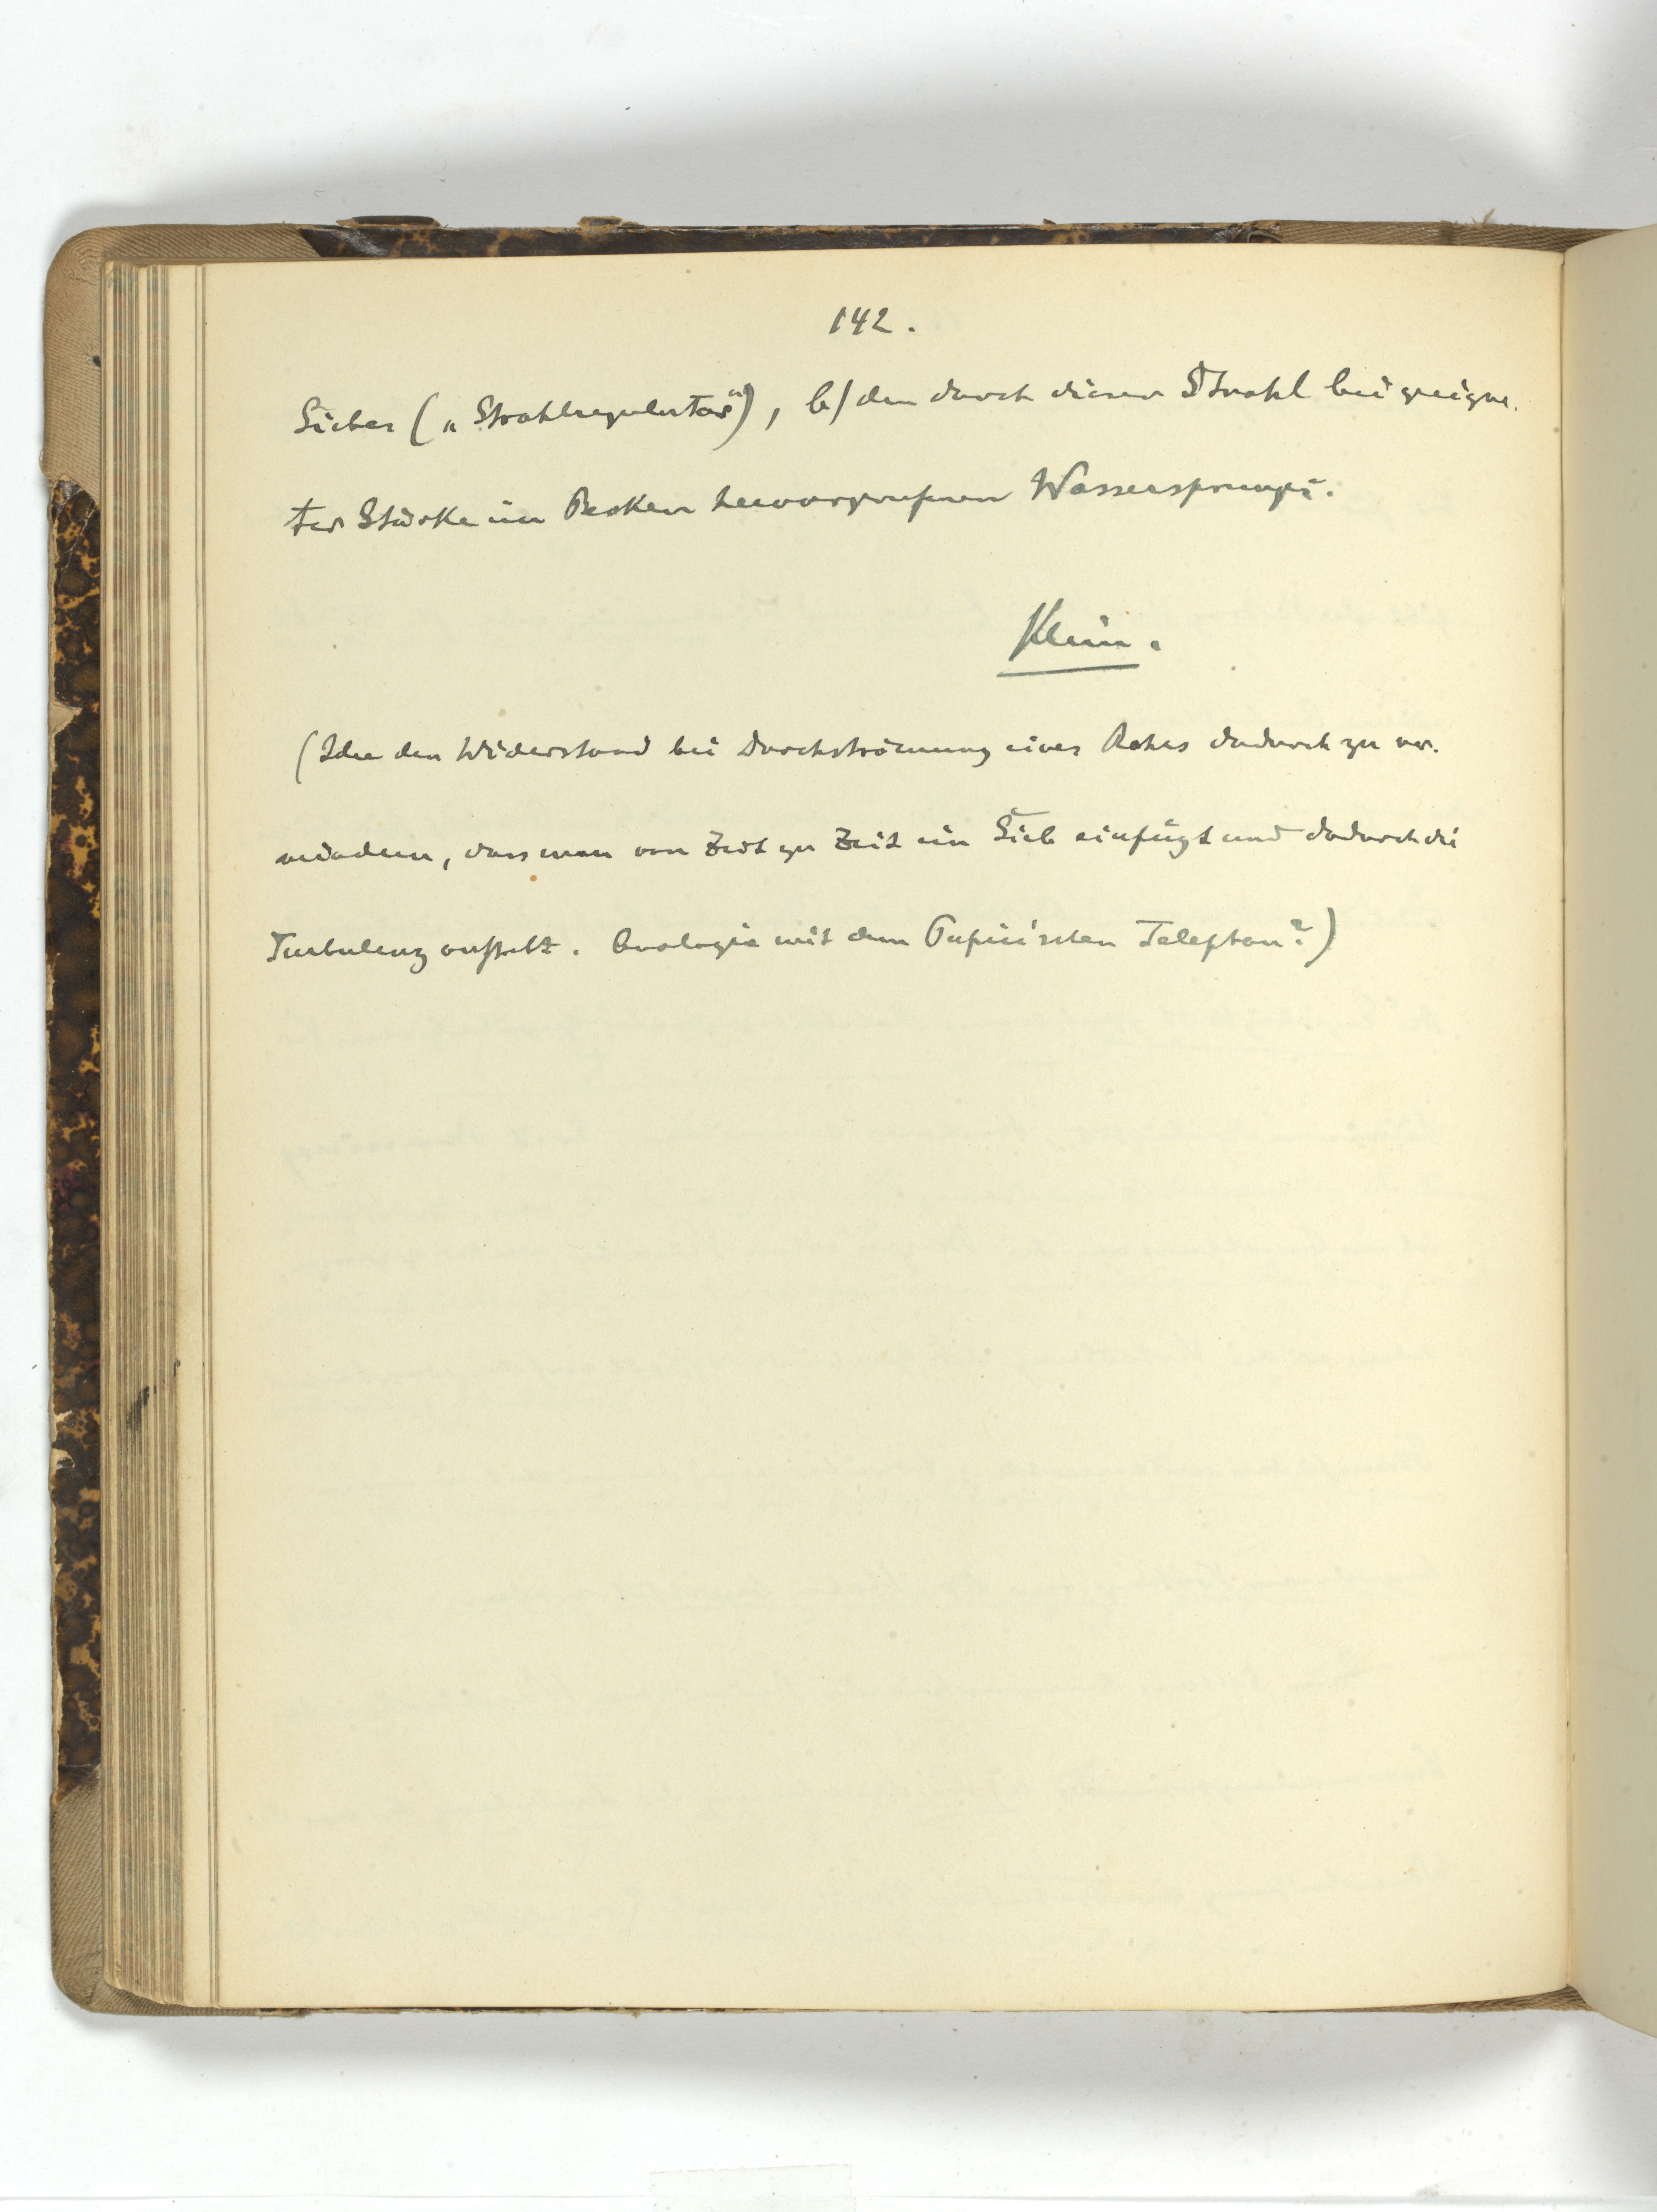 142.
Siebes („Strahlregulator“), b/ den durch diesen Strahl bei geeigne-
ter Stärke im Becken hervorgerufenen Wassersprung.
Klein.
(Idee den Widerstand bei Durchströmung eines Rohrs dadurch zu ver-
mindern, dass man von Zeit zu Zeit ein Sieb einfügt und dadurch die
Turbulenz aufhebt. Analogie mit dem Pupin'schen Telephon?)